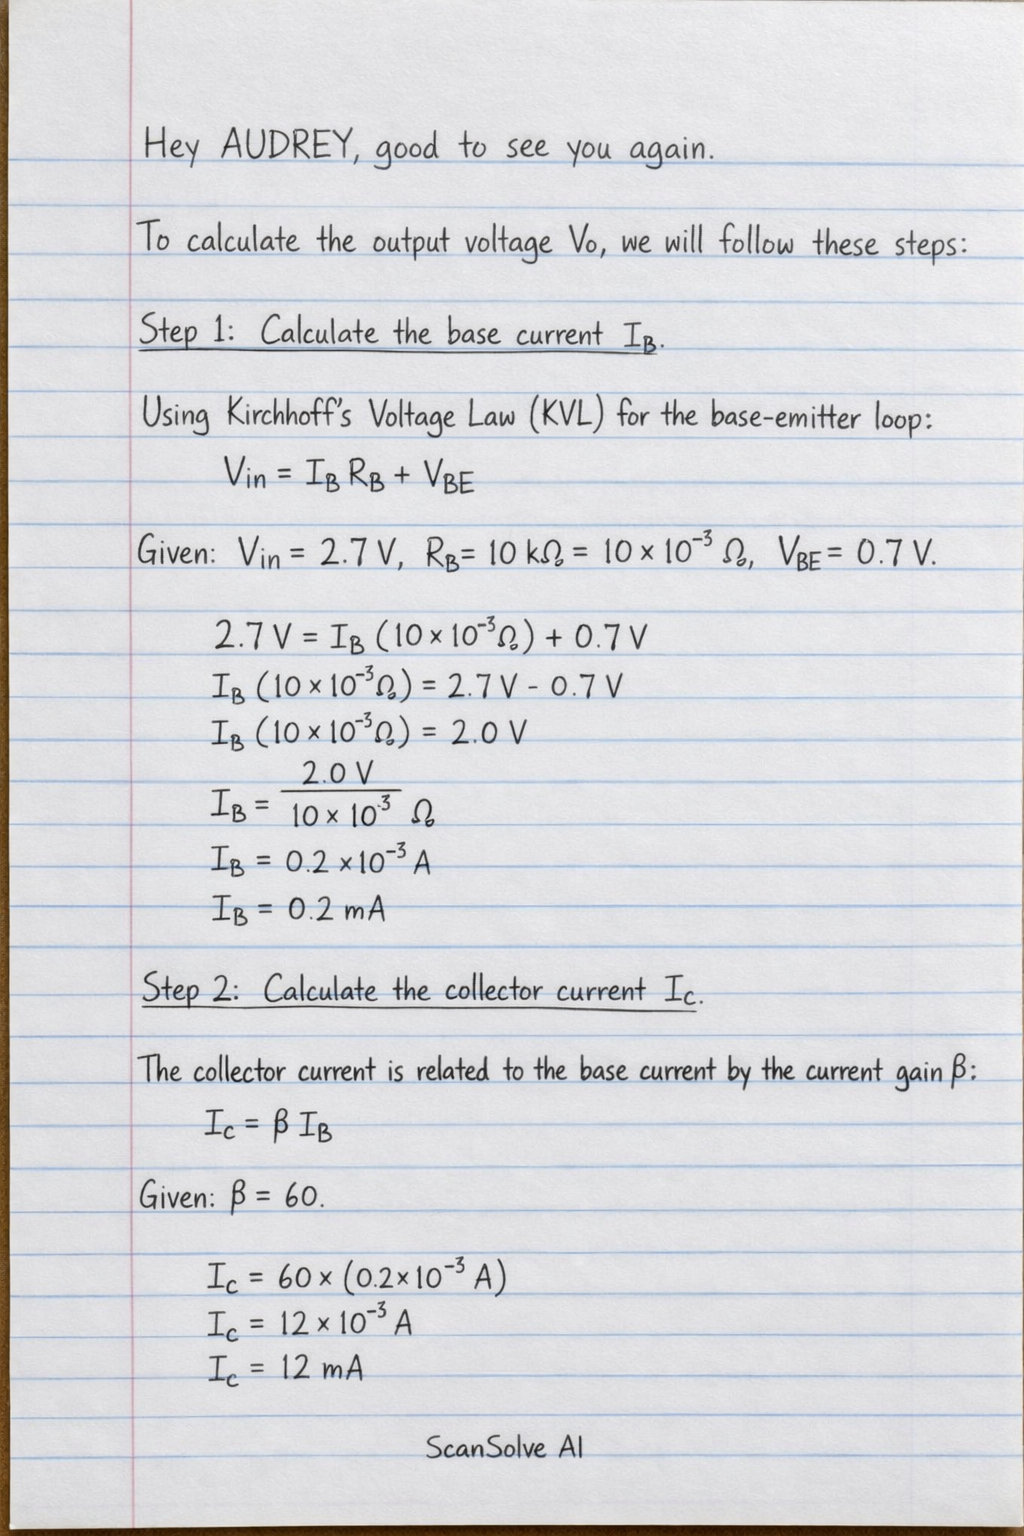 Hey AUDREY, good to see you again.
To calculate the output voltage Vo, we will follow these steps:
Step 1: Calculate the base current I_B.
Using Kirchhoff's Voltage Law (KVL) for the base-emitter loop:
V_in = I_B R_B + V_BE
Given: V_in = 2.7 V, R_B = 10 kΩ = 10 × 10⁻³ Ω, V_BE = 0.7 V.
2.7 V = I_B (10 × 10⁻³ Ω) + 0.7 V
I_B (10 × 10⁻³ Ω) = 2.7 V - 0.7 V
I_B (10 × 10⁻³ Ω) = 2.0 V
2.0 V
I_B = ─────
10 × 10⁻³ Ω
I_B = 0.2 × 10⁻³ A
I_B = 0.2 mA
Step 2: Calculate the collector current I_C.
The collector current is related to the base current by the current gain β:
I_C = β I_B
Given: β = 60.
I_C = 60 × (0.2 × 10⁻³ A)
I_C = 12 × 10⁻³ A
I_C = 12 mA
ScanSolve AI